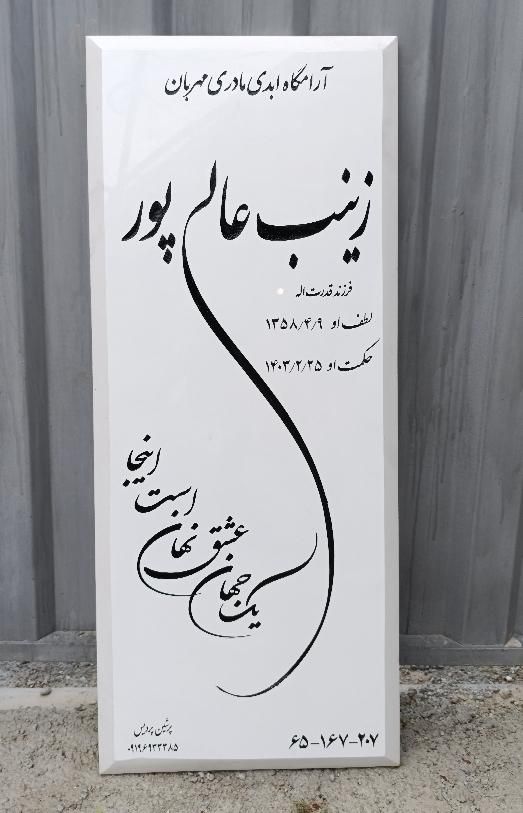 آرامگاه ابدی مادری مهربان
زینب عالی پور
فرزند قدرت اله
لطف او ۱۳۵۸/۴/۹
حکمت او ۱۴۰۳/۲/۲۵
یک جهان
عشق نهان
است
اینجا
پرشین پردیس
۰۹۱۹۶۹۳۳۳۸۵
۶۵-۱۶۷-۲۰۷